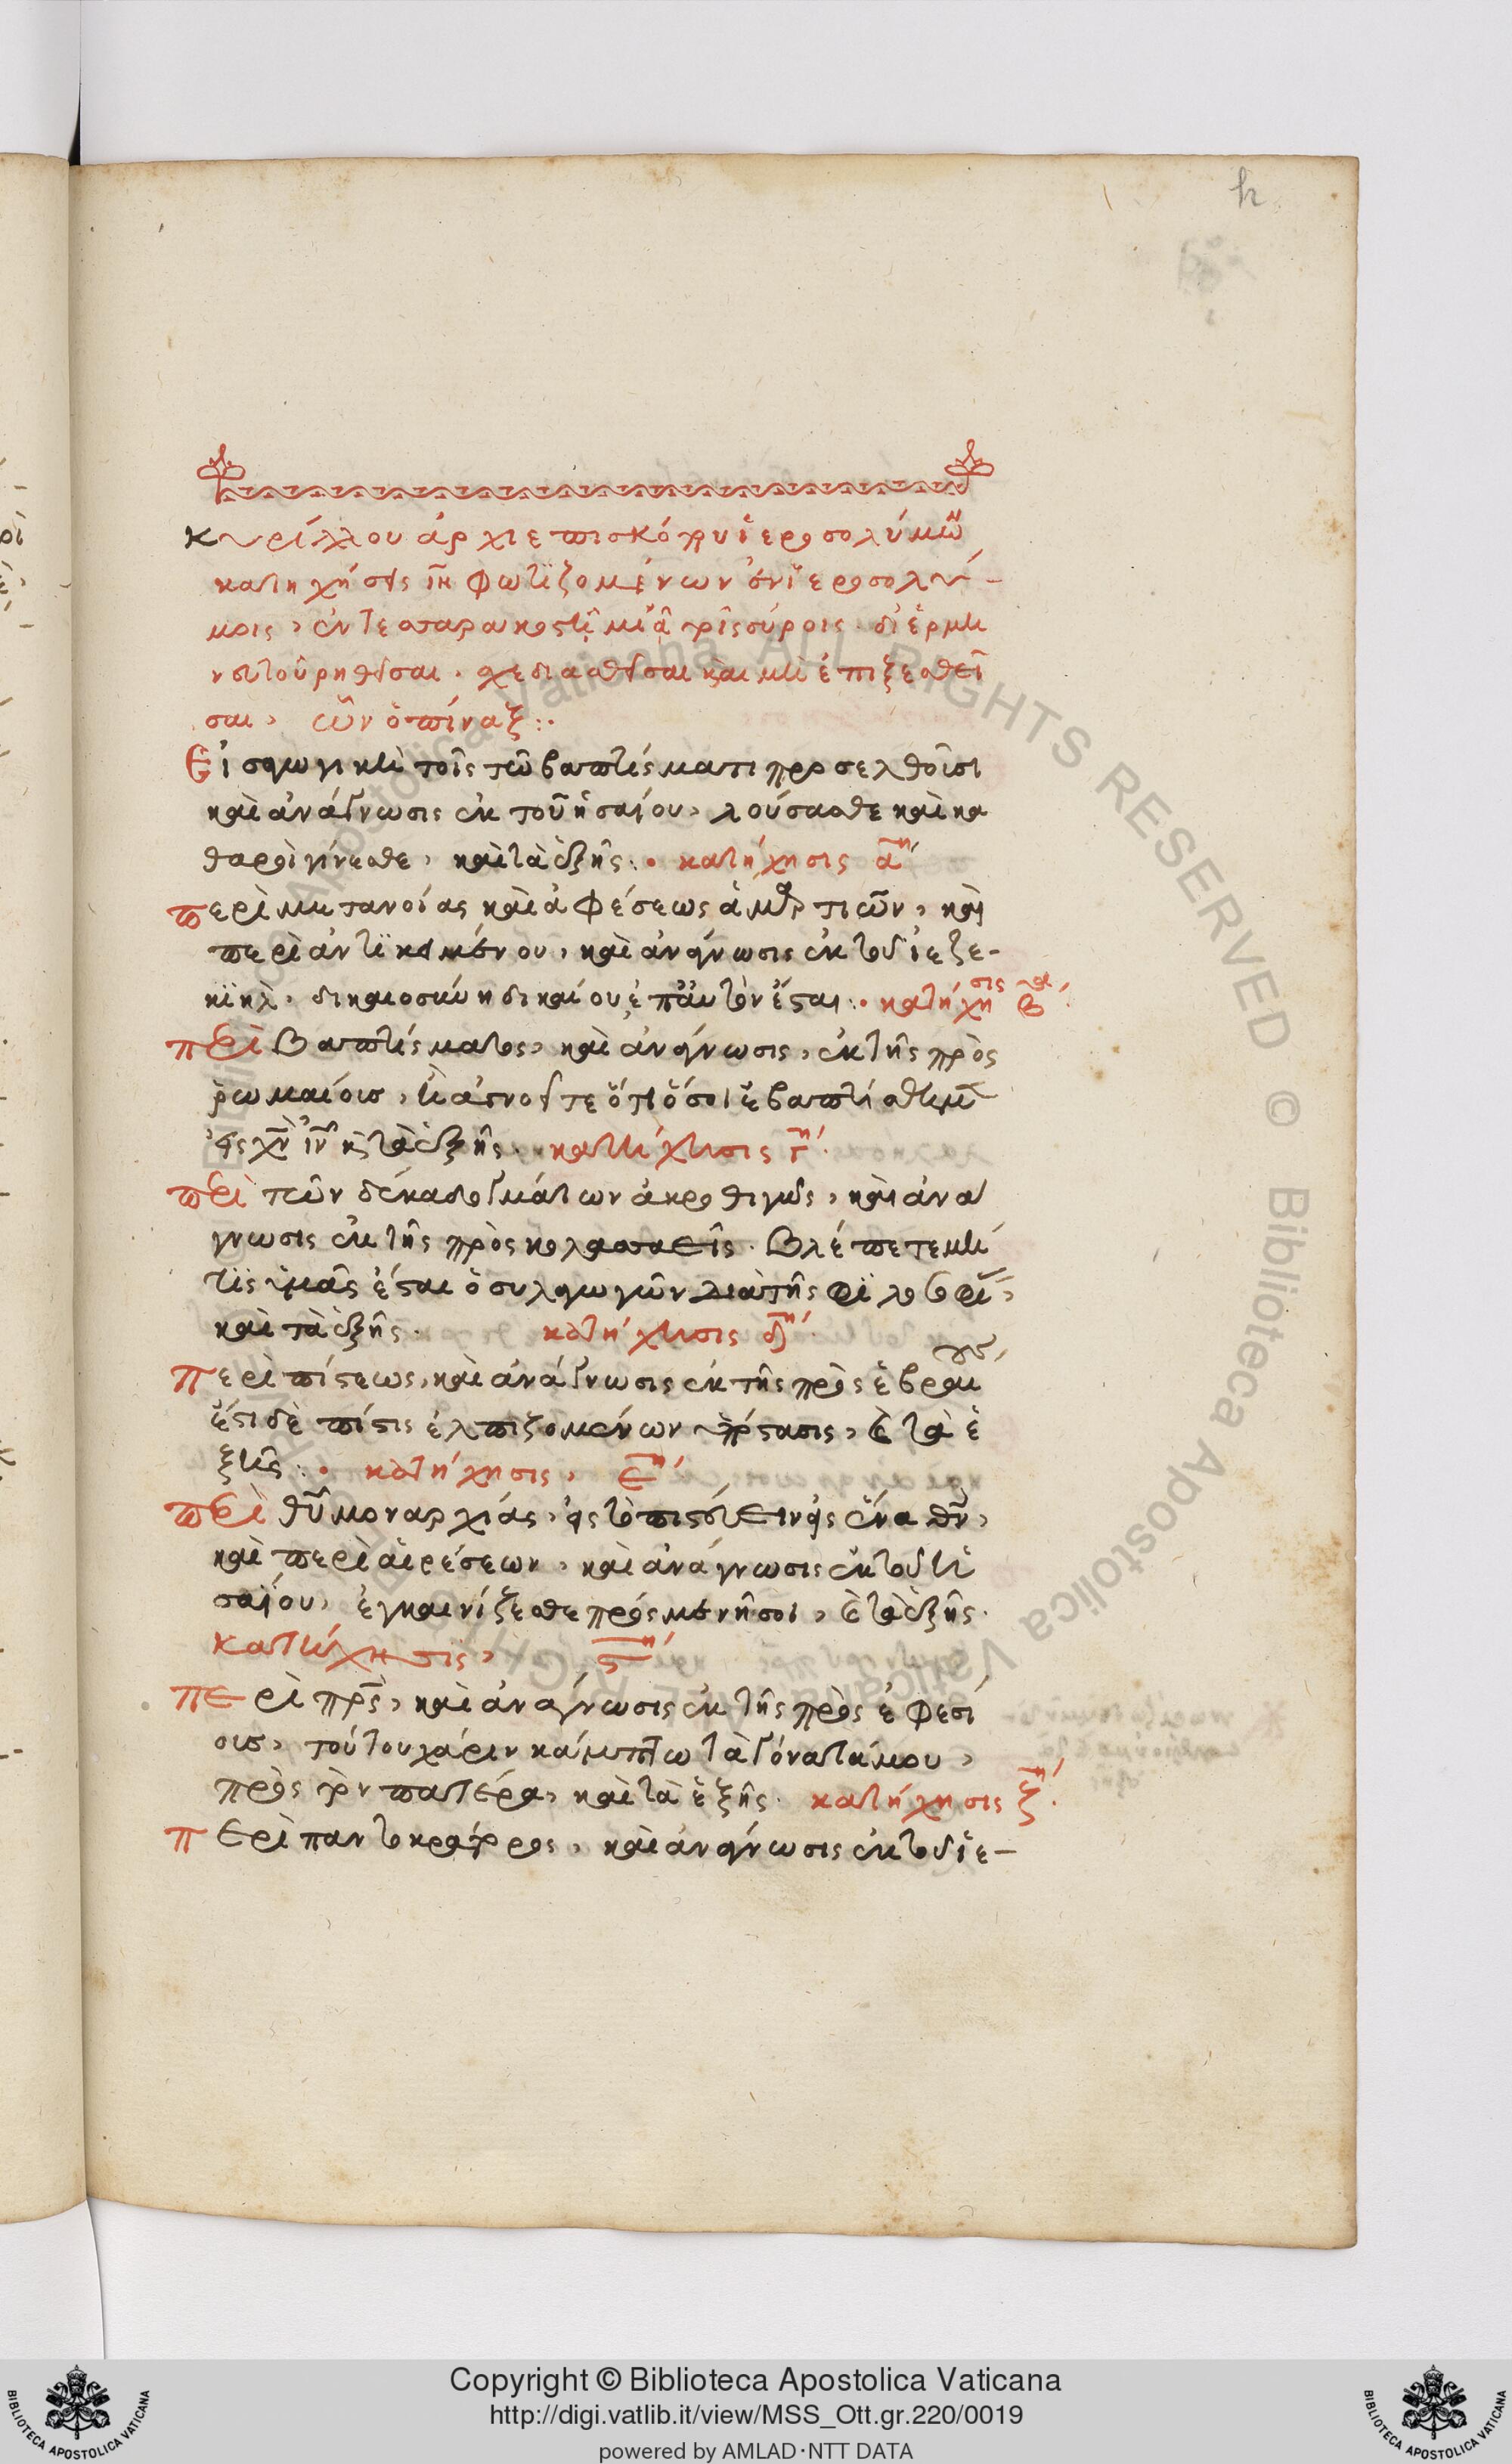 h
κυρίλλου ἀρχιεπισκόπου ἱεροσολύμων
κατηχήσεις ιη φωτιζομένων ἐν ἱεροσολύ-
μοις, ἐν τεσσαρακοστῇ
σχεδιασθεῖσαι καὶ μὴ ἐπιξεσθεῖ
σαι, ὧν ὁ πίναξ :.
Εἰσαγωγικὴ τοῖς τῶ βαπτίσματι προσελθοῦσι
καὶ ἀνάγνωσις ἐκ τοῦ ἡσαΐου, λούσασθε καὶ κα
θαροὶ γίνεσθε, καὶ τὰ ἑξῆς :. κατήχησις αη
περὶ μετανοίας καὶ ἀφέσεως ἁμαρτιῶν, καὶ
περὶ ἀντικειμένου, καὶ ἀνάγνωσις ἐκ τοῦ ἰεζε-
κιὴλ. δικαιοσύνη δικαίου ἐπ' αὐτὸν ἔσται :. κατήχησις β
περὶ βαπτίσματος, καὶ ἀνάγνωσις, ἐκ τῆς πρὸς
ῥωμαίους, ἢ ἀγνοεῖτε ὅτι ὅσοι ἐβαπτίσθημεν
εἰς χν ιν κ τὰ ἑξῆς. κατήχησις γη
περὶ τῶν δέκα δογμάτων ἀκροθιγῶς, καὶ ἀνά
γνωσις ἐκ τῆς πρὸς κολασσαεῖς. βλέπετε μή
τις ὑμᾶς ἔσται ὁ συλαγωγῶν διὰ τῆς φιλοσοφί,
καὶ τὰ ἑξῆς. κατήχησις δη
περὶ πίστεως, καὶ ἀνάγνωσις ἐκ τῆς πρὸς ἑβραίους,
ἔστι δὲ πίστις ἐλπιζομένων ὑπόστασις, καὶ τὰ ἑ
ξῆς :. κατήχησις, εη
περὶ θυ μοναρχίας, εἰς τὸ πιστεύειν εἰς ἕνα θν,
καὶ περὶ αἱρέσεων, καὶ ἀνάγνωσις ἐκ τοῦ ἡ
σαΐου, ἐγκαινίζεσθε πρός με νῆσοι, καὶ τὰ ἑξῆς.
κατήχησις, ςη
περὶ πρς, καὶ ἀνάγνωσις ἐκ τῆς πρὸς ἐφεσί
ους, τούτου χάριν κάμπτω τὰ γόνατά μου,
πρὸς τὸν πατέρα, καὶ τὰ ἑξῆς. κατήχησις ζη
περὶ παντοκράτορος, καὶ ἀνάγνωσις ἐκ τοῦ ἱε-
Biblioteca Apostolica Vaticana ALL RIGHTS RESERVED © Biblioteca Apostolica Vaticana
Copyright © Biblioteca Apostolica Vaticana
http://digi.vatlib.it/view/MSS_Ott.gr.220/0019
powered by AMLAD·NTT DATA
BIBLIOTECA APOSTOLICA VATICANA
BIBLIOTECA APOSTOLICA VATICANA